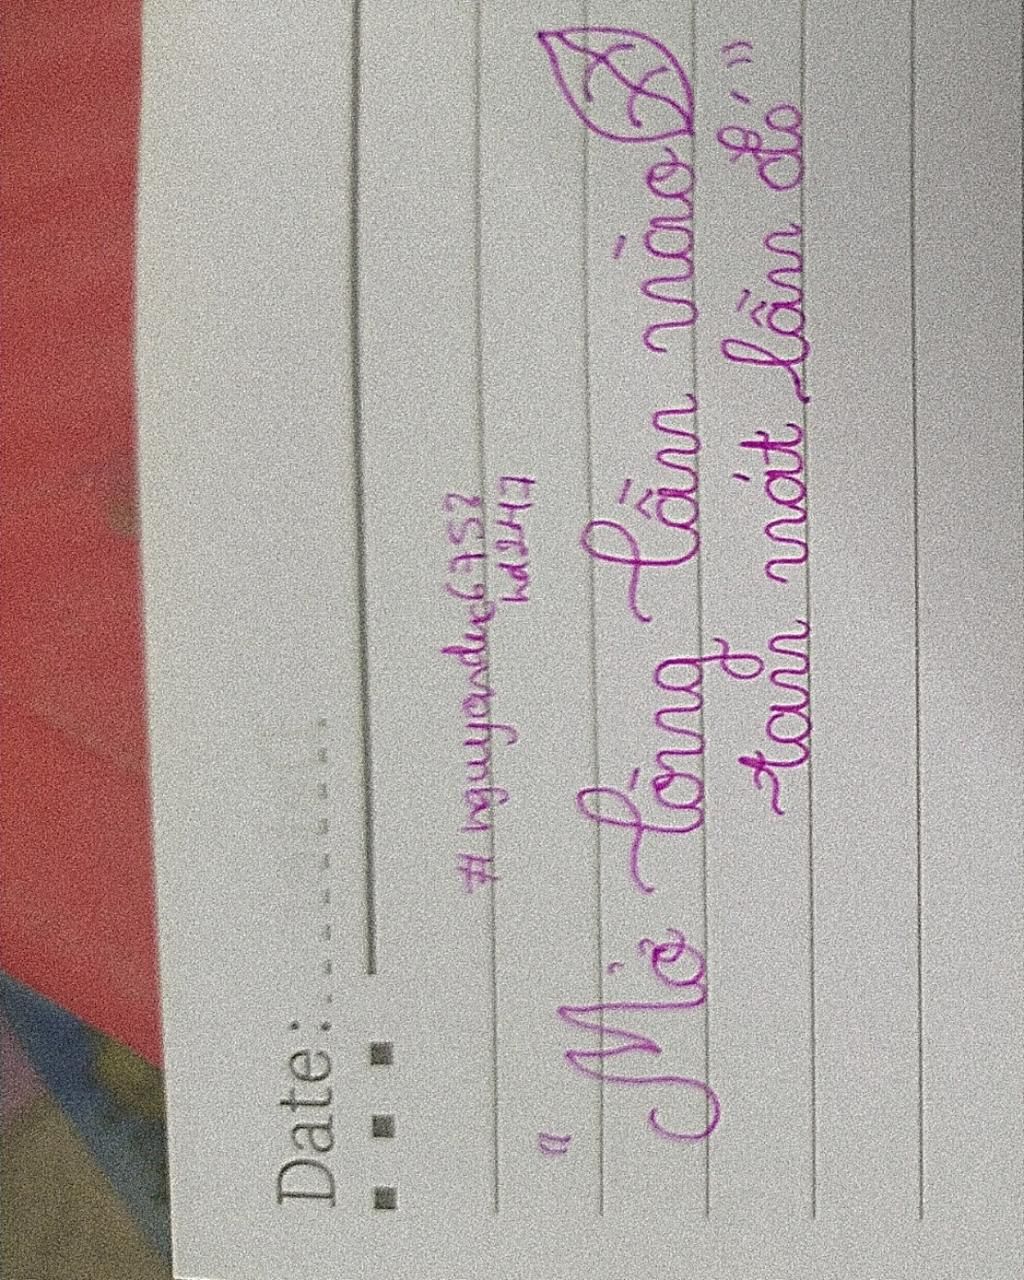 Date:
# nguyendue6757
hd247
"Mở lòng lần nào
tan nát lần đó"